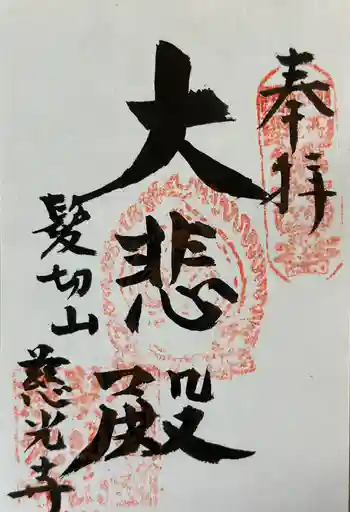 奉拝
大悲殿
髪切山
慈光寺